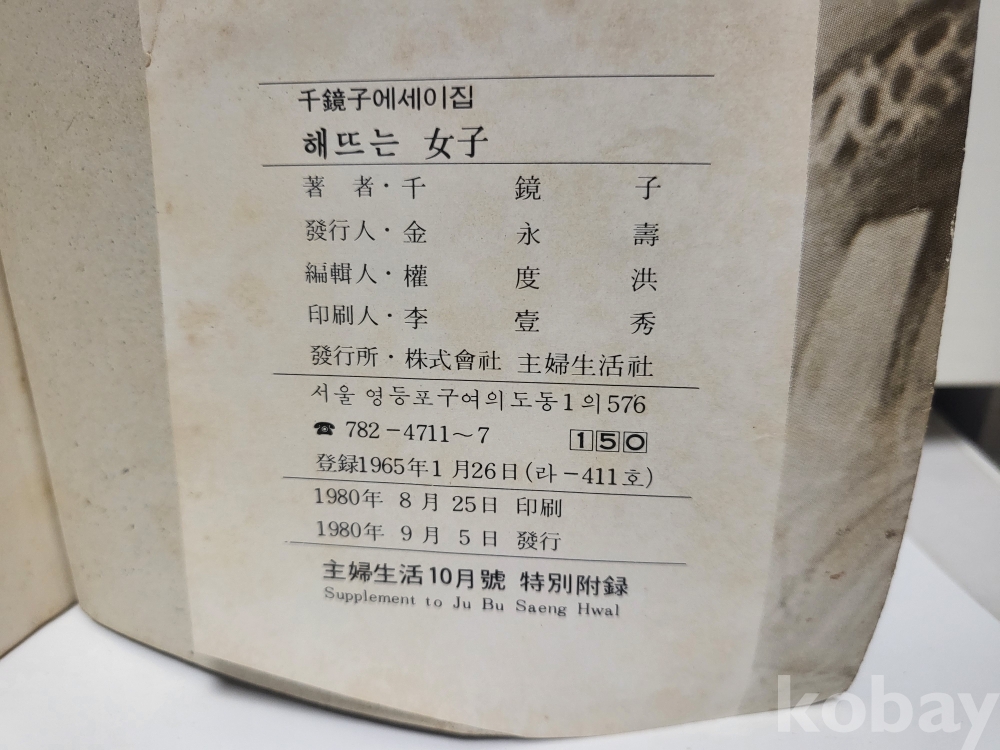 千鏡子에세이집
해뜨는 女子
著 者·千 鏡 子
發行人·金 永 壽
編輯人·權 度 洪
印刷人·李 壹 秀
發行所·株式會社 主婦生活社
서울 영등포구여의도동1의576
☎ 782-4711~7 150
登録1965年1月26日(라-411호)
1980年 8月 25日 印刷
1980年 9月 5日 發行
主婦生活10月號 特別附録
Supplement to Ju Bu Saeng Hwal
kobay